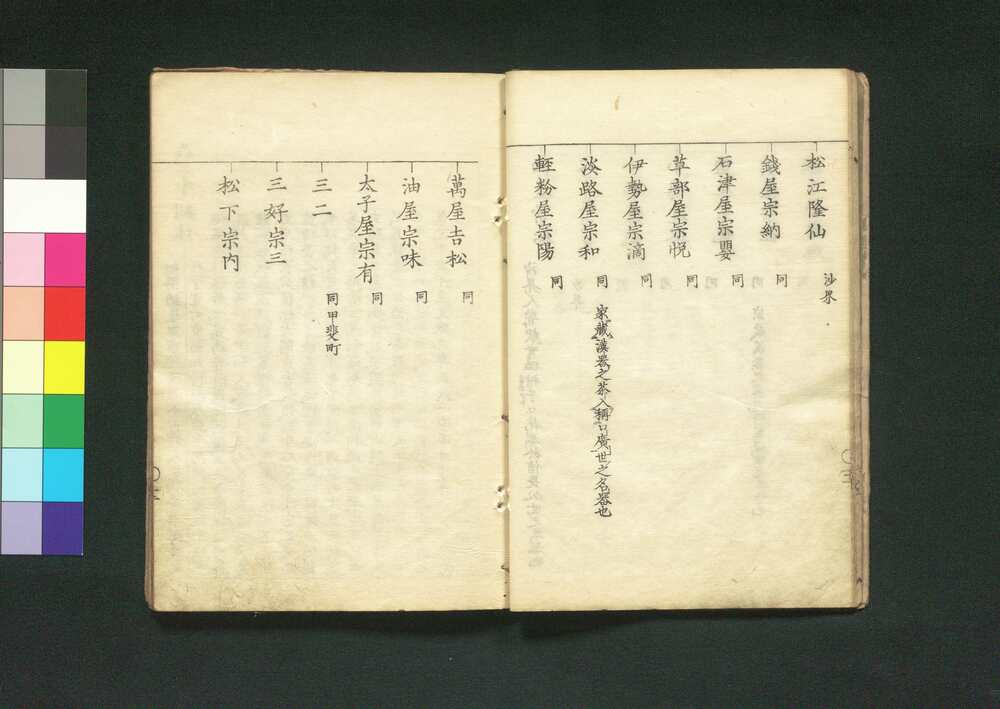 松江隆仙 沙界
錢屋宗納 同
石津屋宗嬰 同
草部屋宗悅 同
伊勢屋宗滴 同
淡路屋宗和 同 家藏漢器之茶入稱口廣世之名器也
輕粉屋宗陽 同
萬屋吉松 同
油屋宗味 同
太子屋宗有 同
三二 同甲斐町
三好宗三
松下宗內